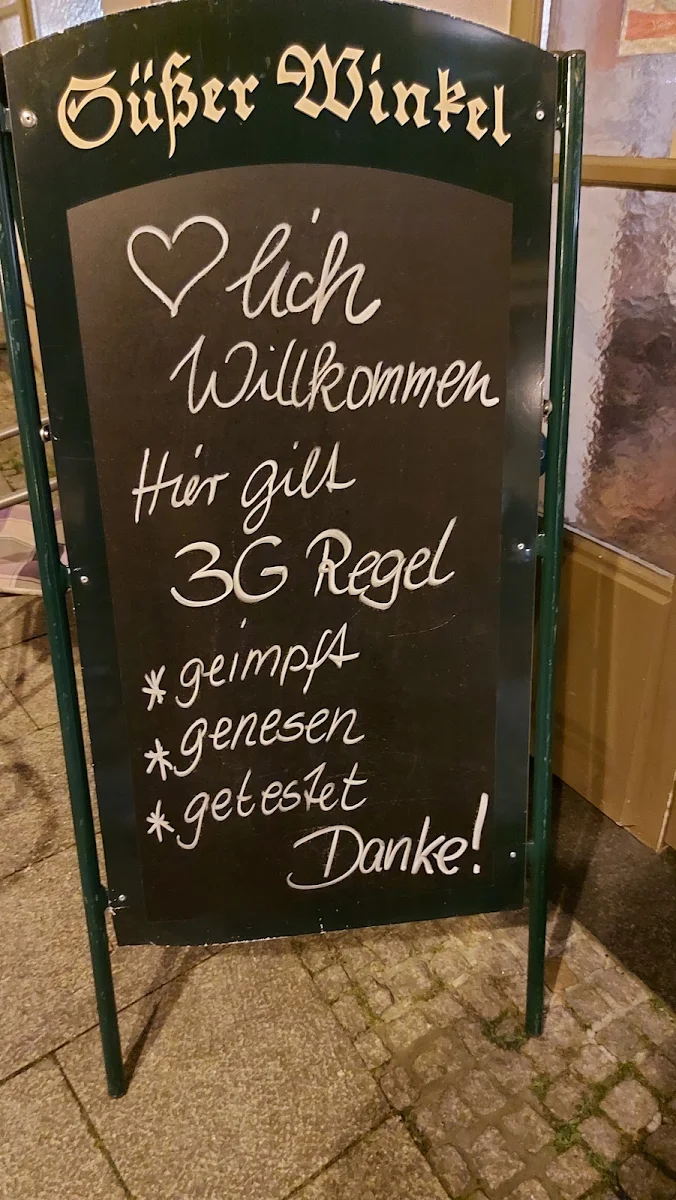 Süßer Winkel
♡lich
Willkommen
Hier gilt
3G Regel
* geimpft
* genesen
* getestet
Danke!